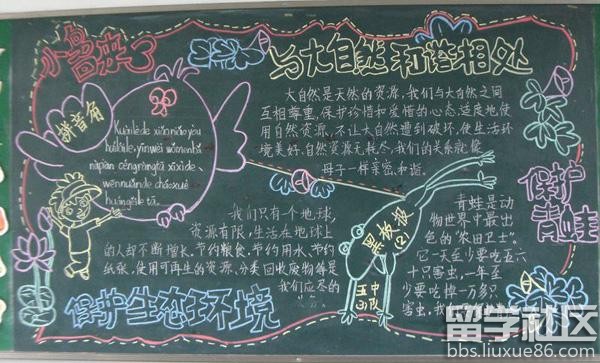 小鸟来了
与大自然和谐相处
拼音角
大自然是天然的资源,我们与大自然之间
互相尊重,保护珍惜和爱惜的心态,适度地使
用自然资源,不让大自然遭到破坏,使生活环
境美好,自然资源无耗尽,我们的关系就像
母子一样亲密、和谐。
保护青蛙
我们只有个地球,
资源有限,生活在地球上
的人却不断增长。节约粮食,节约用水,节约
纸张,使用可再生的资源,分类回收废物等是
我们应尽的
黑板报
(2)
玉中
山队
青蛙是动
物世界中最出
色的“农田卫士”。
它一天至少要吃五六
十只害虫,一年至
少要吃掉一万多只
害虫,我们
保护生态环境
留学社区
bbs.liuxue86.com